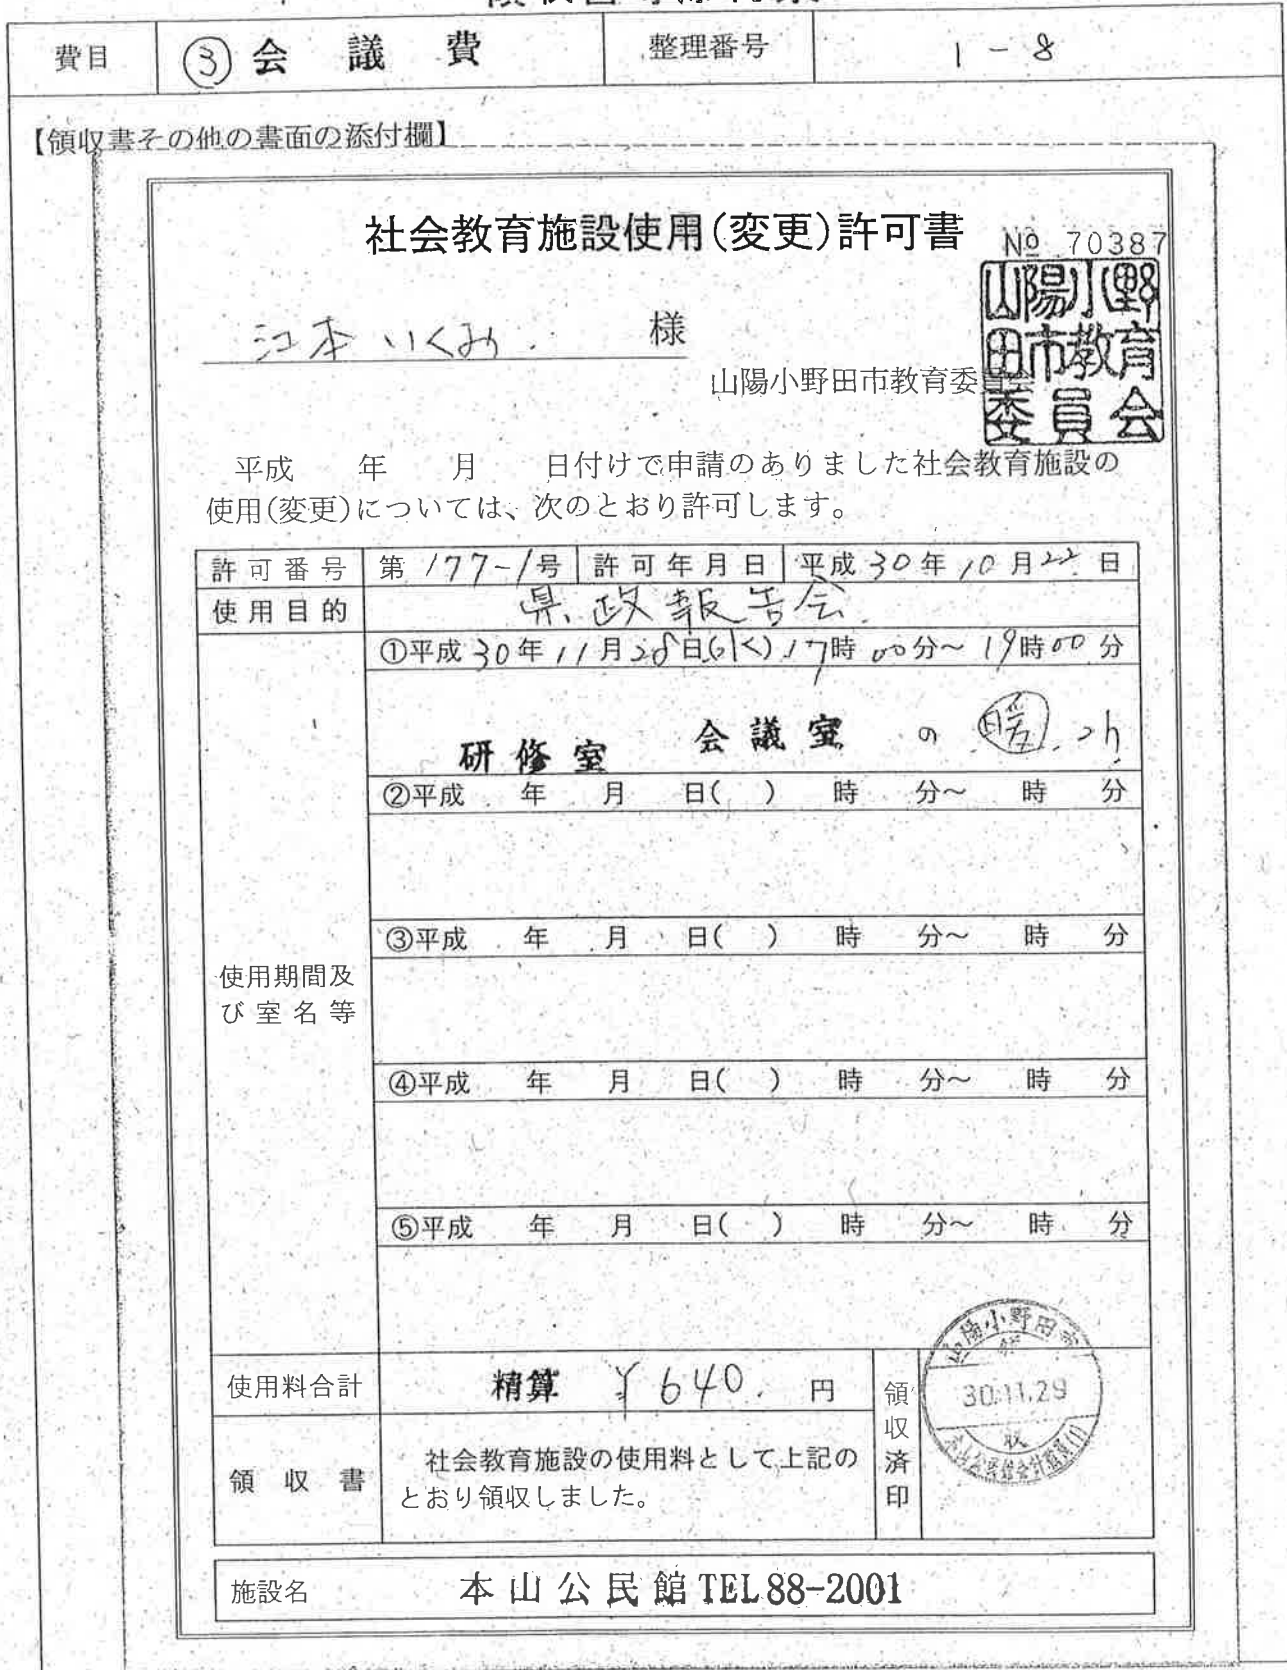 費目 ③ 会議費 整理番号 1-8
【領収書その他の書面の添付欄】
社会教育施設使用(変更)許可書
№ 70387
江本いくみ 様
山陽小野田市教育委員会
山陽小野田市教育委員会
平成 年 月 日付けで申請のありました社会教育施設の
使用(変更)については、次のとおり許可します。
許可番号 第177-1号 許可年月日 平成30年10月22日
使用目的 県政報告会
①平成30年11月28日(水)17時00分~19時00分
研修室 会議室 の 暖 2h
②平成 年 月 日( ) 時 分~ 時 分
③平成 年 月 日( ) 時 分~ 時 分
使用期間及
び室名等
④平成 年 月 日( ) 時 分~ 時 分
⑤平成 年 月 日( ) 時 分~ 時 分
使用料合計 精算 ¥640. 円
領収済印
山陽小野田市
30.11.29
領収書
社会教育施設の使用料として上記の
とおり領収しました。
施設名 本山公民館 TEL 88-2001